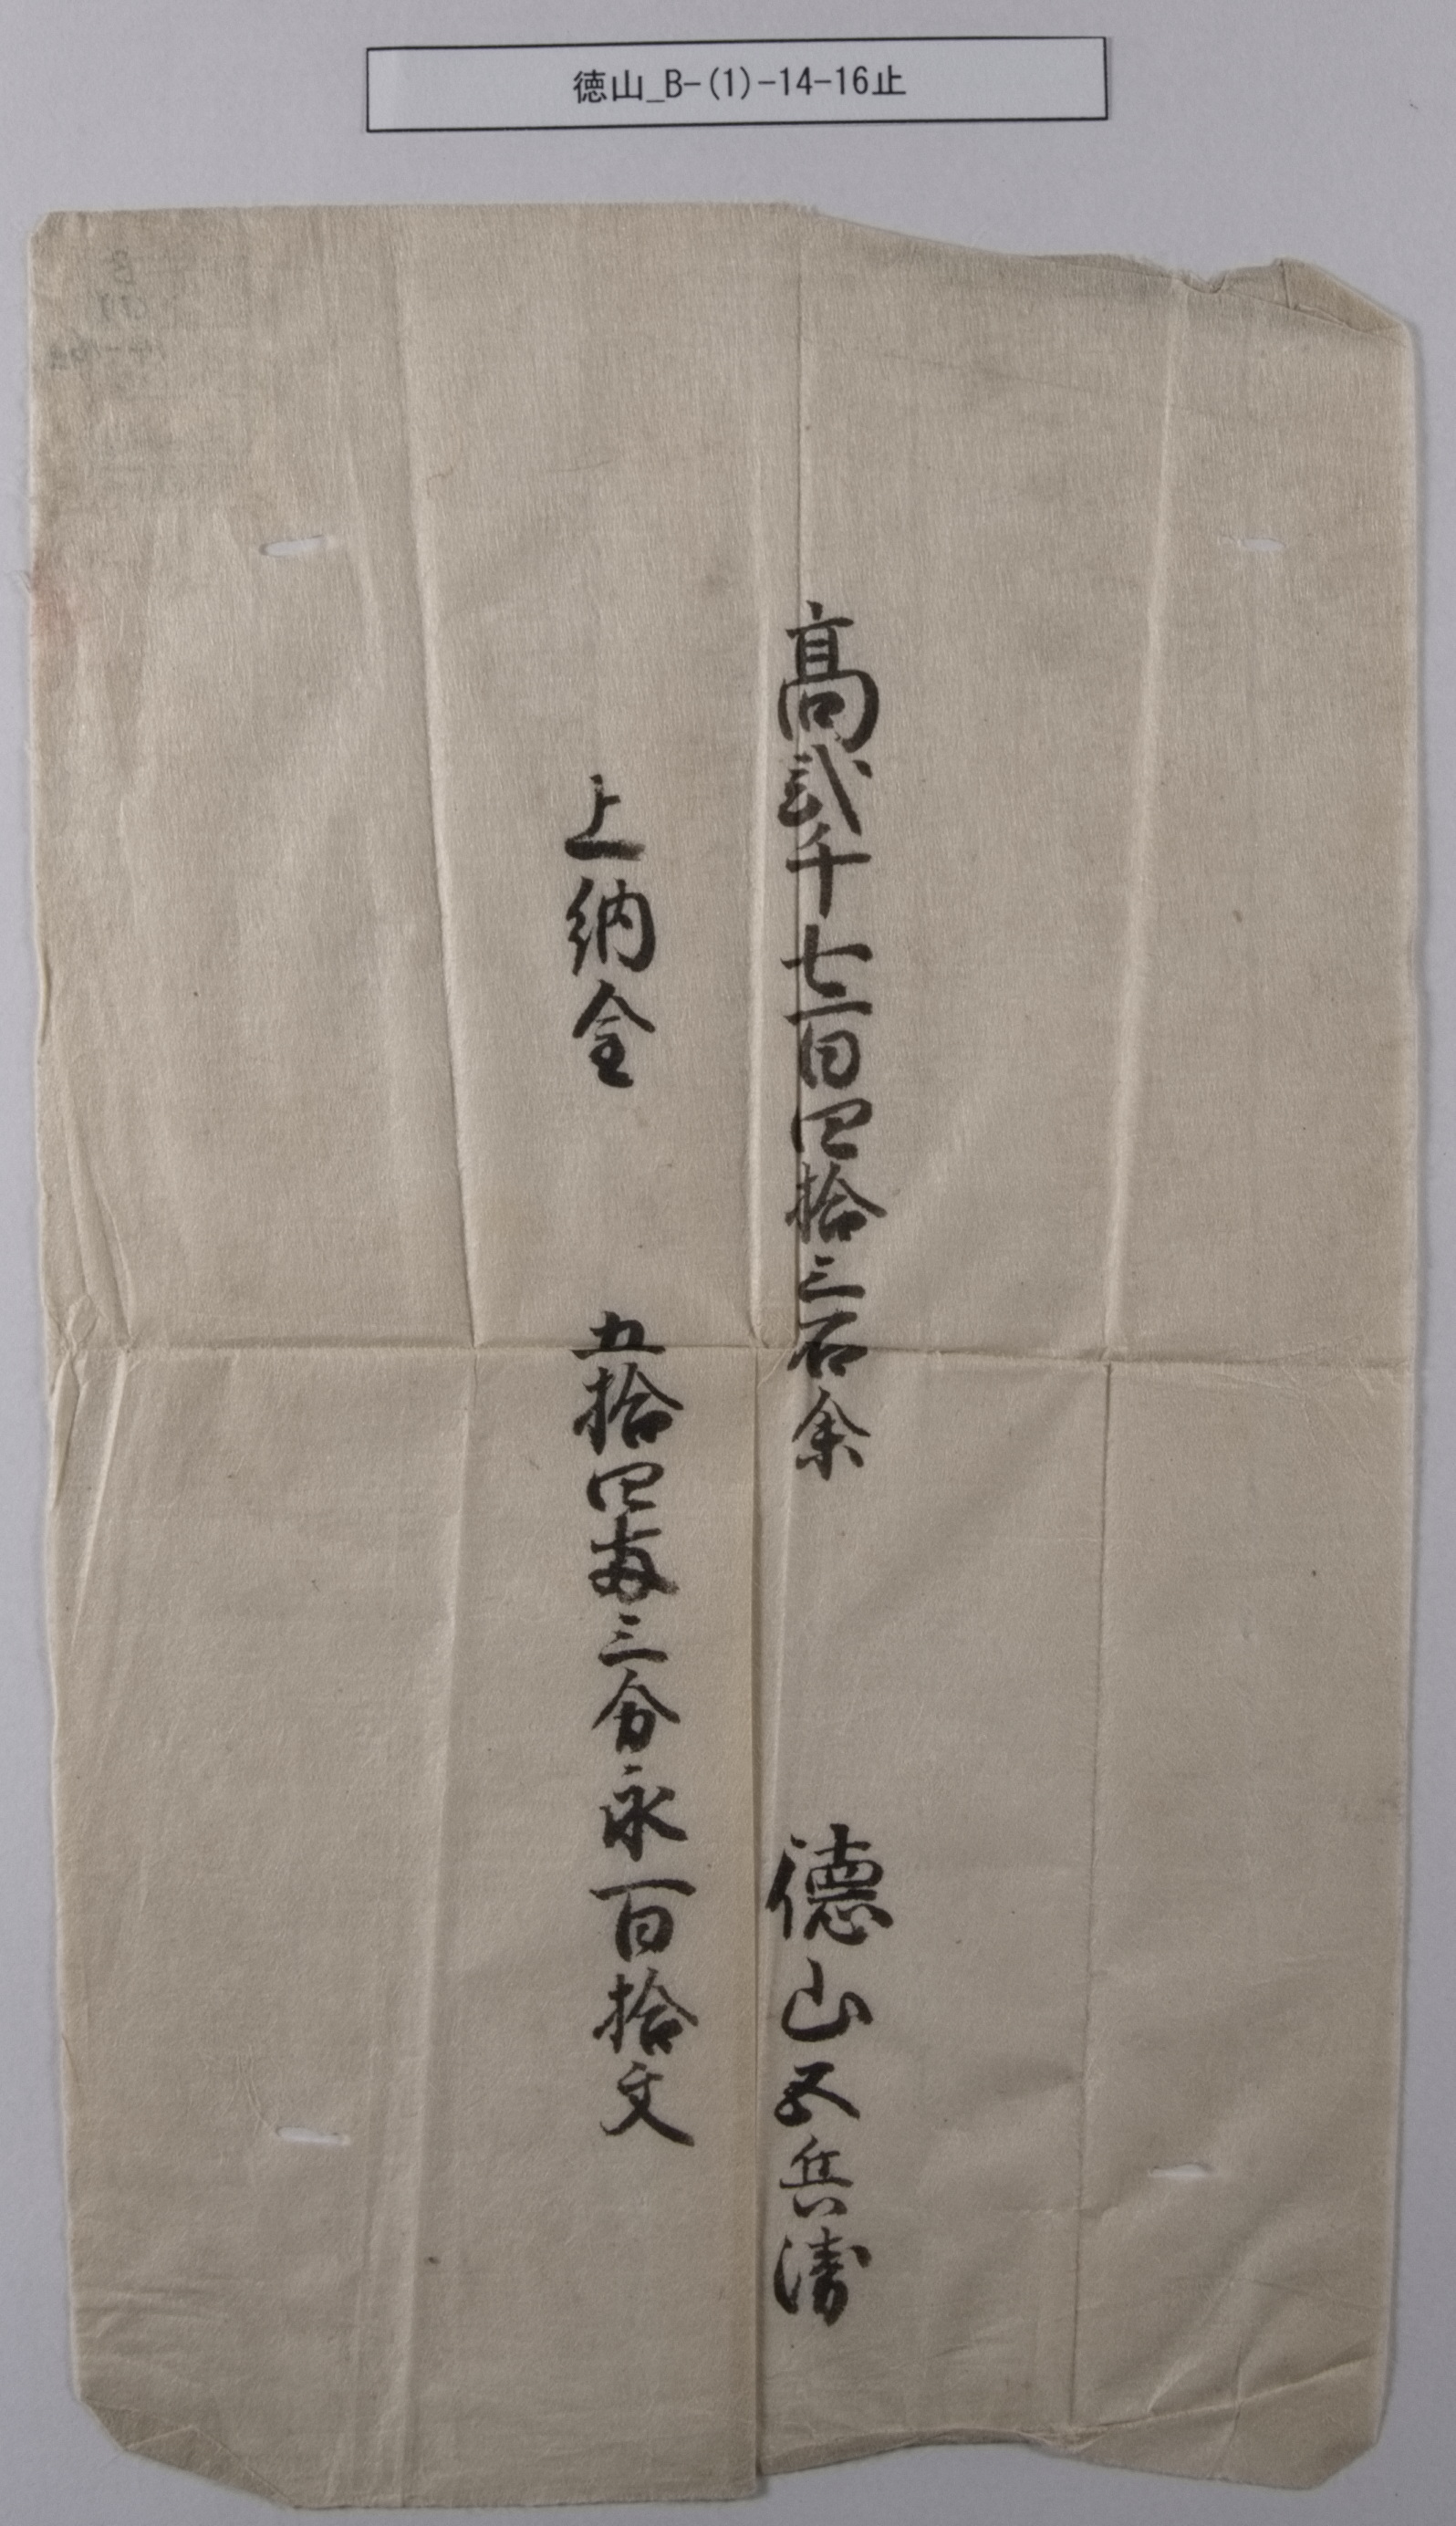 徳山_B-(1)-14-16止
高弐千七百四拾三石余
徳山五兵衛
上納金
五拾四両三分永百拾文